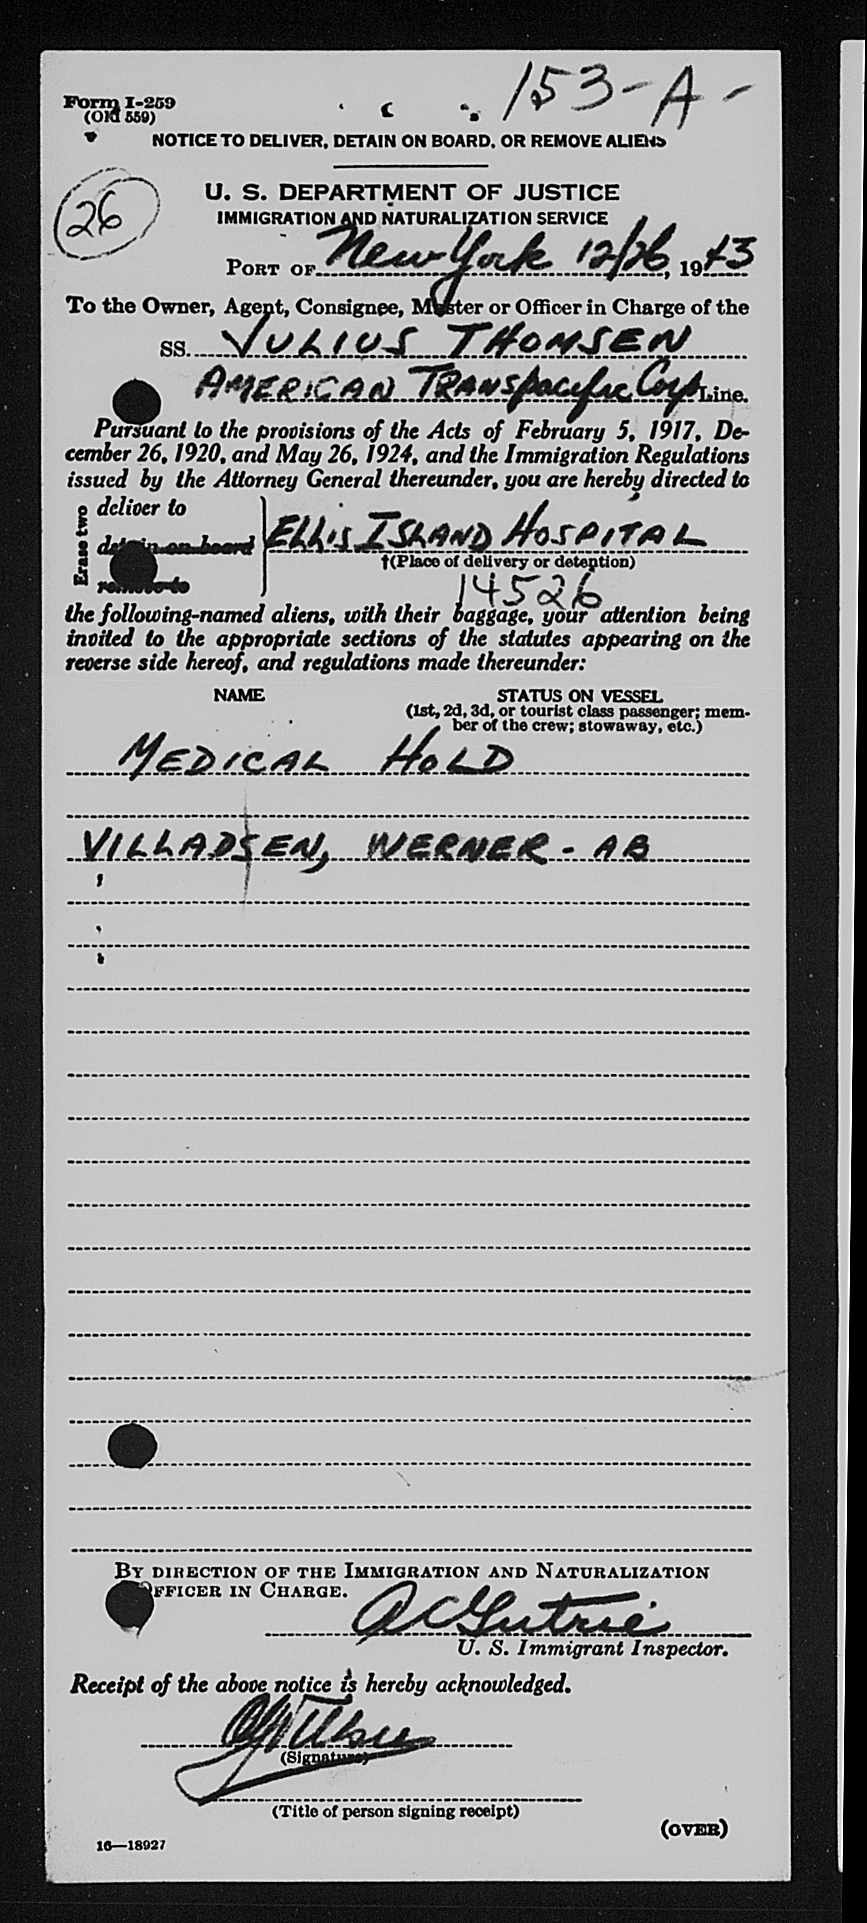 153-A-
Form I-259
(Old 559)
NOTICE TO DELIVER, DETAIN ON BOARD, OR REMOVE ALIENS
26
U. S. DEPARTMENT OF JUSTICE
IMMIGRATION AND NATURALIZATION SERVICE
PORT OF New York 12/26, 1943
To the Owner, Agent, Consignee, Master or Officer in Charge of the
SS. JULIUS THOMSEN
AMERICAN TRANSpacific Corp Line.
Pursuant to the provisions of the Acts of February 5, 1917, De-
cember 26, 1920, and May 26, 1924, and the Immigration Regulations
issued by the Attorney General thereunder, you are hereby directed to
Erase two
deliver to
detain on board ELLIS ISLAND HOSPITAL
†(Place of delivery or detention)
remove to
14526
the following-named aliens, with their baggage, your attention being
invited to the appropriate sections of the statutes appearing on the
reverse side hereof, and regulations made thereunder:
NAME STATUS ON VESSEL
(1st, 2d, 3d, or tourist class passenger; mem-
ber of the crew; stowaway, etc.)
MEDICAL HOLD
VILLADSEN, WERNER - AB
BY DIRECTION OF THE IMMIGRATION AND NATURALIZATION
OFFICER IN CHARGE.
A C Gutrie
U. S. Immigrant Inspector.
Receipt of the above notice is hereby acknowledged.
(Signature)
(Title of person signing receipt)
(OVER)
16—18927